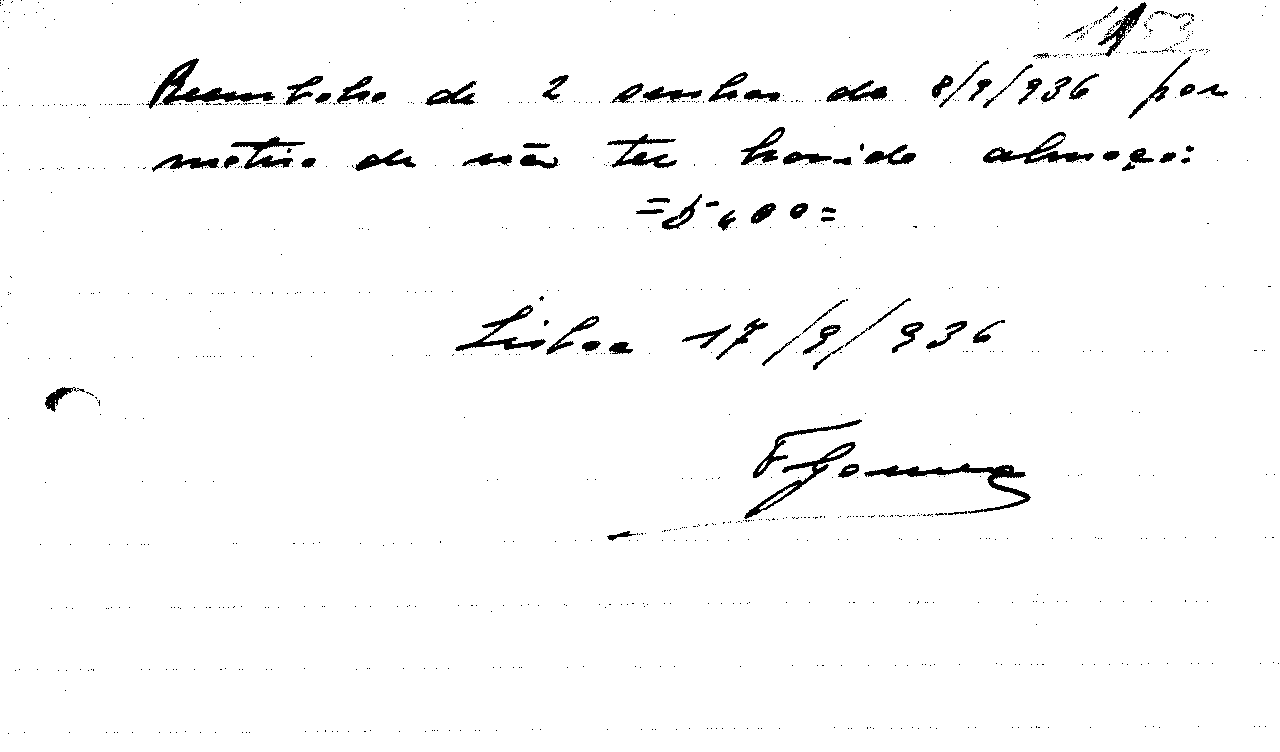 Reembolso de 2 senhas do 8/9/936 por
motivo de não ter havido almoço:
=5,00=
Lisboa 17/9/936
FGomes